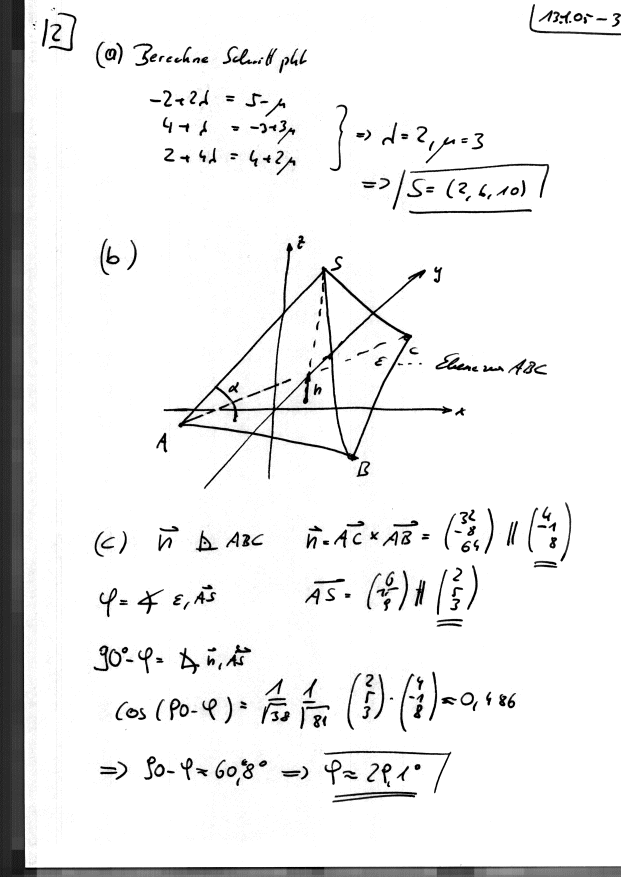 13.1.05-3
12
(a) Berechne Schnittpkt
-2+2λ = 5-μ
4+λ = -3+3μ
2+4λ = 4+2μ
=> λ=2, μ=3
=> S=(2,6,10)
(b)
z
S
y
C
ε ... Ebene von ABC
α
h
x
A
B
(c) n⃗ ⊾ ABC n⃗=AC⃗ × AB⃗ = (32 -8 64) || (4 -1 8)
φ=∢ ε, AS⃗ AS⃗ = (6 15 9) || (2 5 3)
90°-φ = ∢ n⃗, AS⃗
cos (90-φ) = 1/√38 1/√81 (2 5 3)·(4 -1 8) ≈ 0,486
=> 90-φ ≈ 60,8° => φ ≈ 29,1°